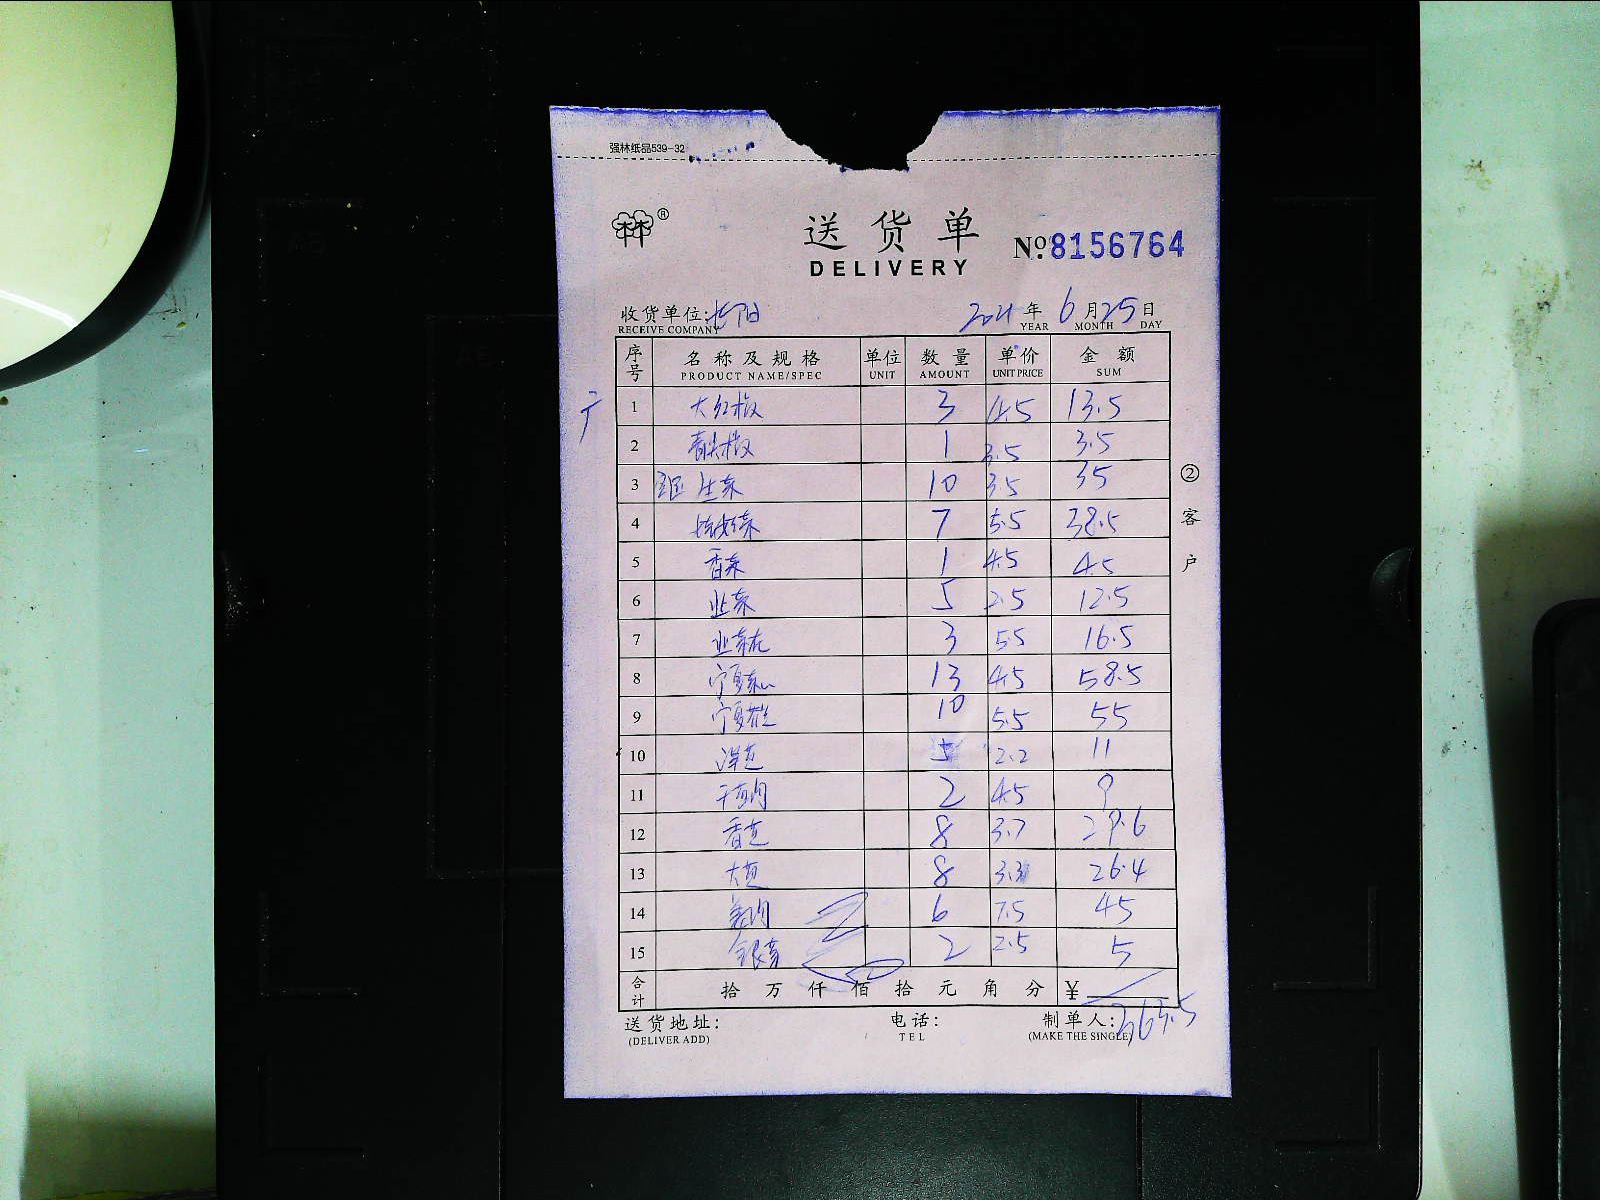 强林纸品539-32
送货单
DELIVERY
№:8156764
收货单位:
RECEIVE COMPANY
2021年6月25日
YEAR MONTH DAY
序号 名称及规格 单位 数量 单价 金额
PRODUCT NAME/SPEC UNIT AMOUNT UNIT PRICE SUM
1 大红椒 3 4.5 13.5
2 青尖椒 1 3.5 3.5
3 生菜 10 3.5 35
4 7 5.5 38.5
5 香菜 1 4.5 4.5
6 韭菜 5 2.5 12.5
7 3 5.5 16.5
8 宁夏菜心 13 4.5 58.5
9 宁夏 10 5.5 55
10 洋芝 5 2.2 11
11 2 4.5 9
12 香芝 8 3.7 29.6
13 大 8 3.3 26.4
14 姜肉 6 7.5 45
15 银芽 2 2.5 5
合计 拾 万 仟 佰 拾 元 角 分 ¥ 363.5
②客户
送货地址:
(DELIVER ADD)
电话:
TEL
制单人:
(MAKE THE SINGLE)